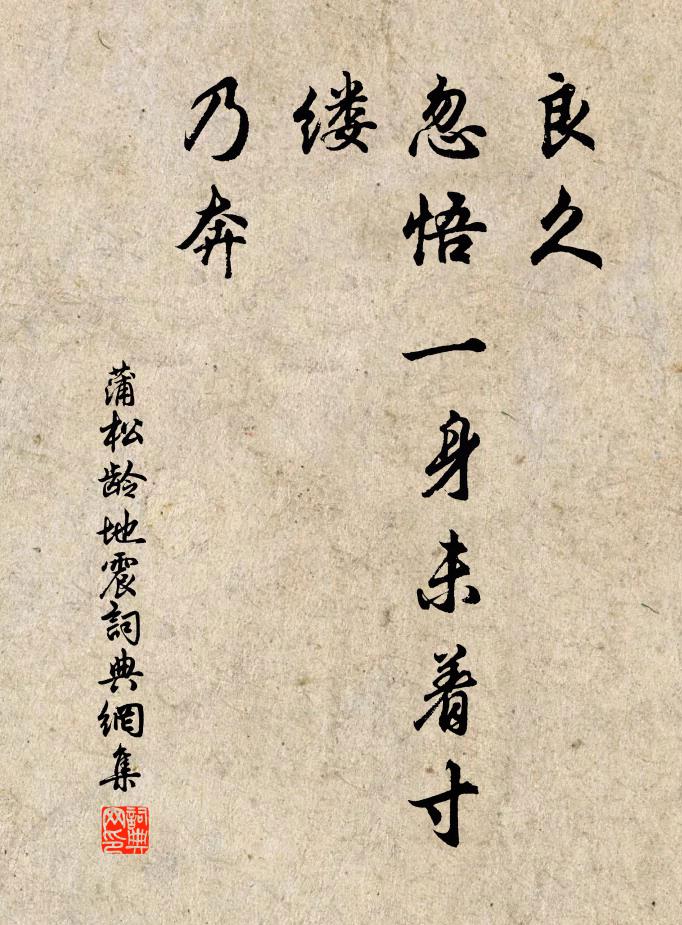 良久
忽悟一身未着寸
缕
乃奔
蒲松龄地震詞典網集
詞典
网印